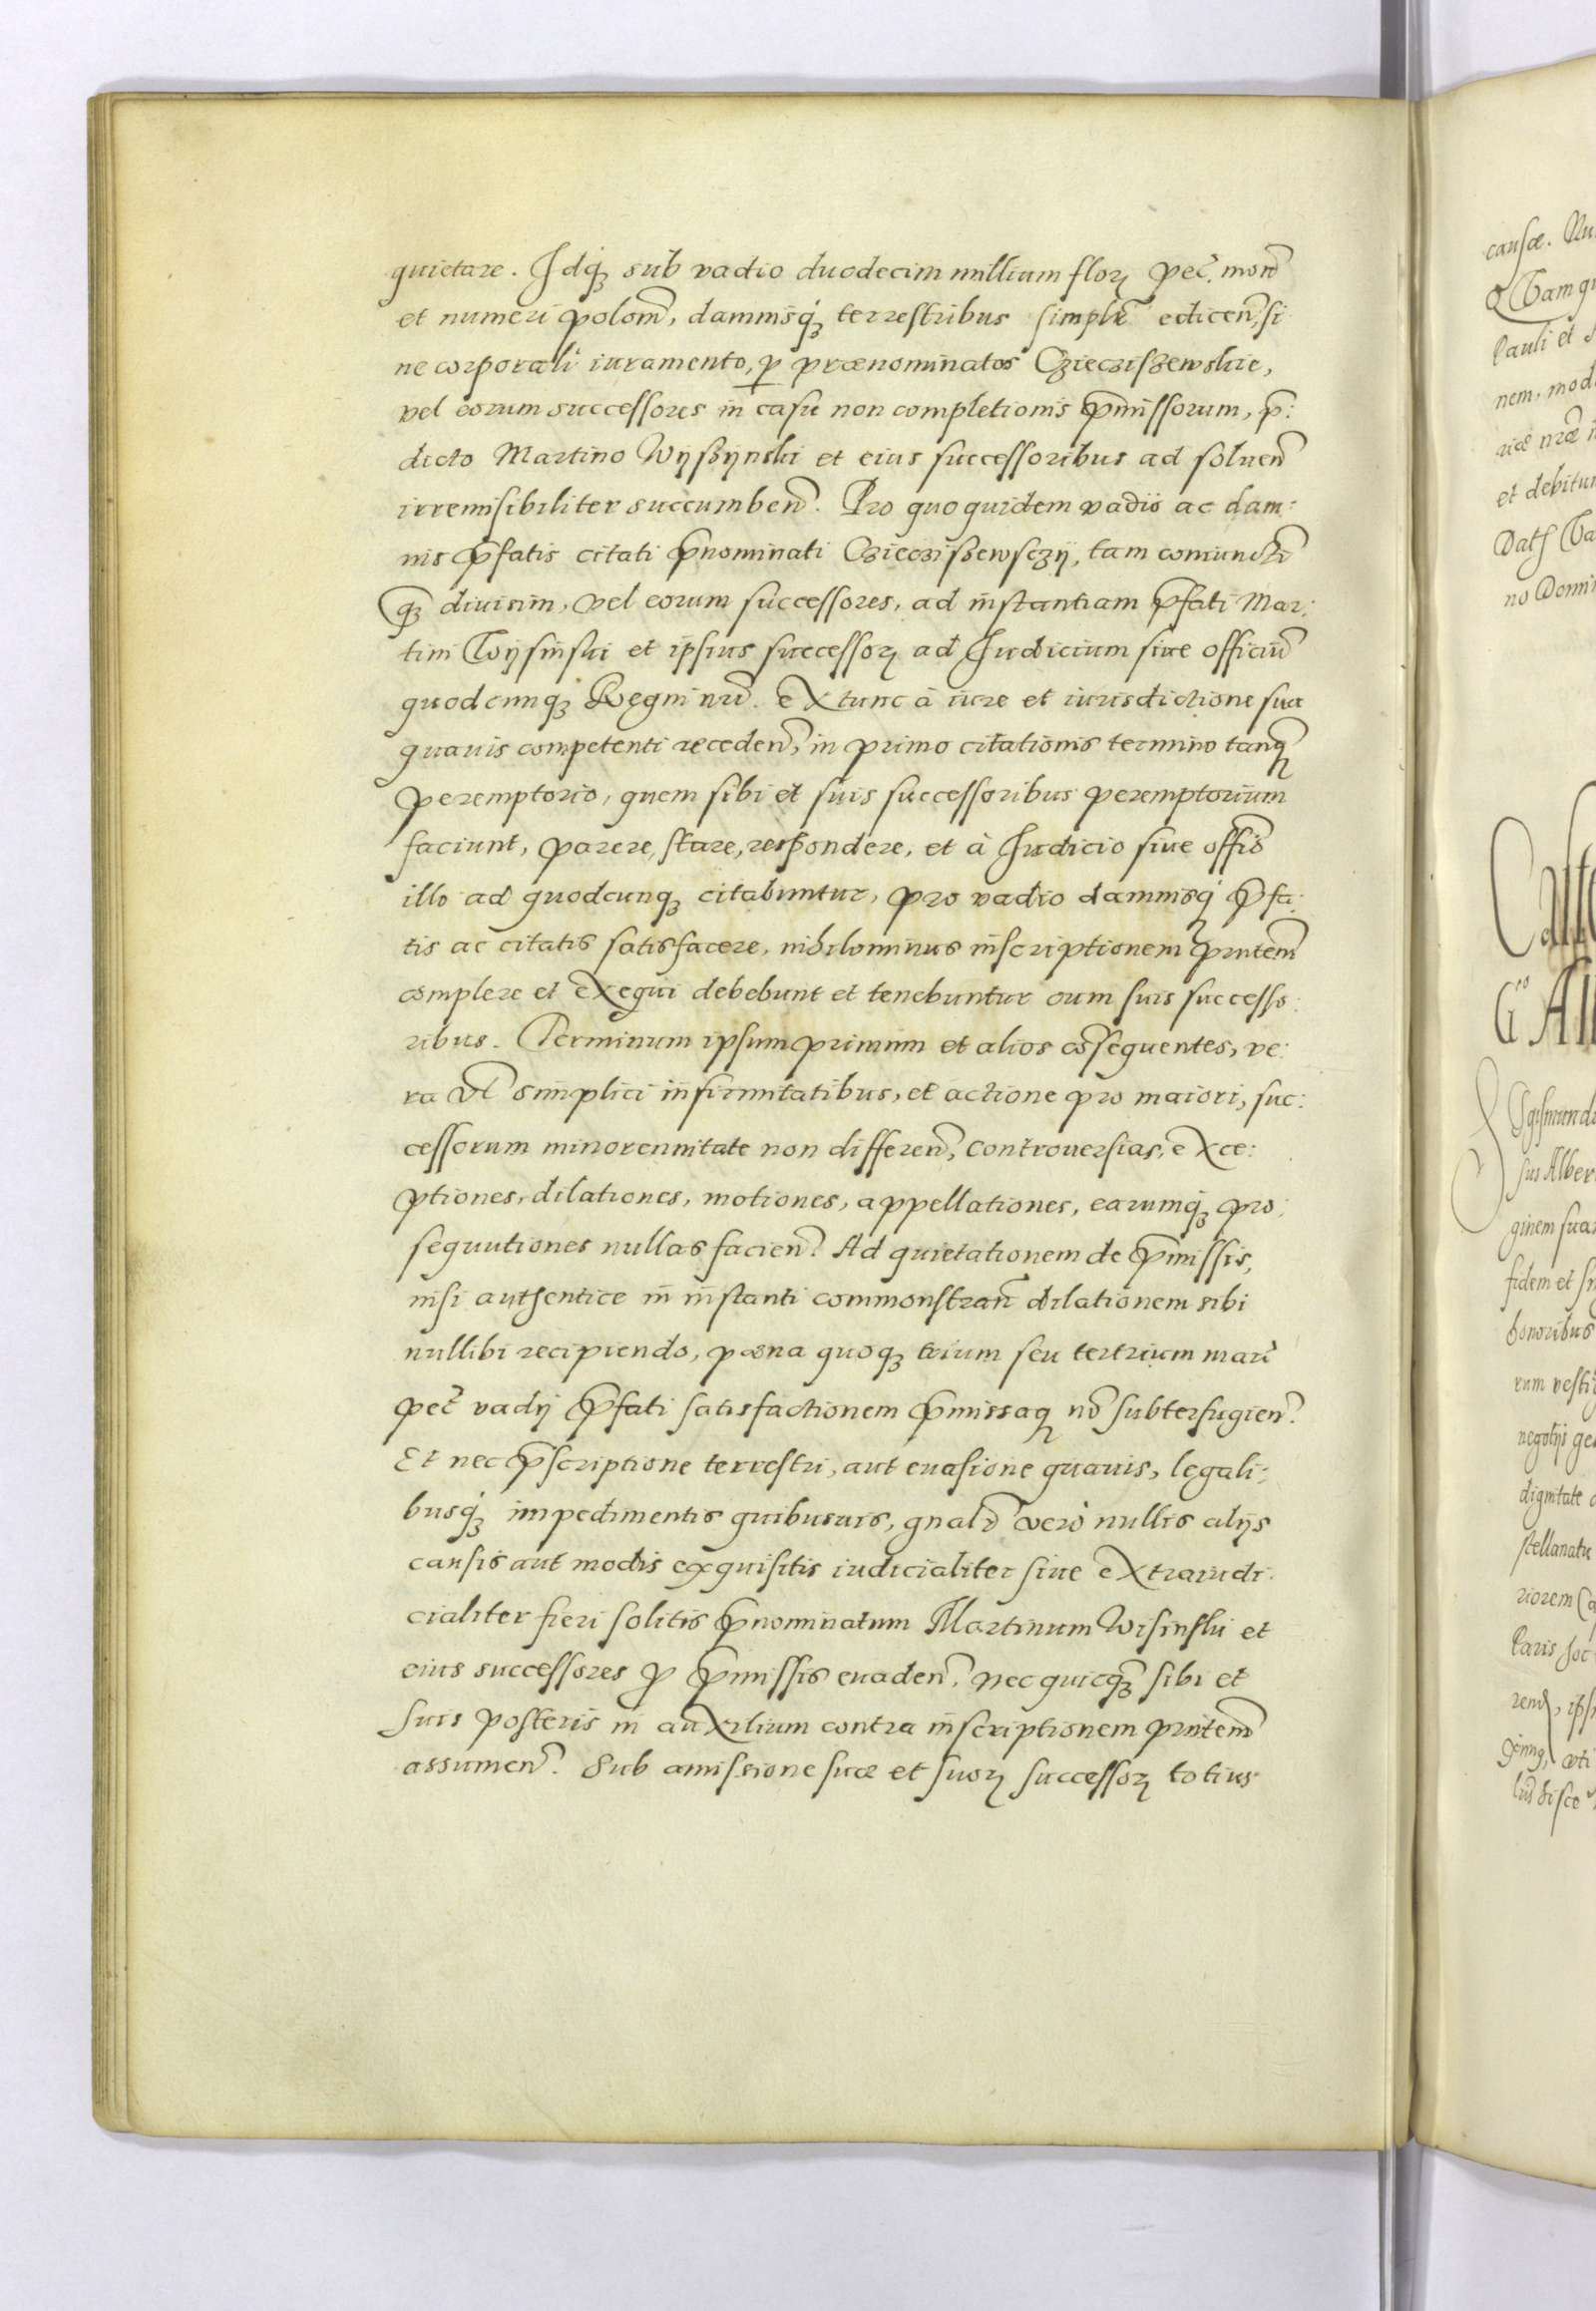 quietare. Idq́ꝫ sub vadio duodecim millium florꝝ pec̃. mon̄
et numeri polon̄, damnisq́ꝫ terrestribus simplr̃ edicen̄, si
ne corporali iuramento, ꝑ prænominatos Cziecziszewskie,
vel eorum successores in casu non completionis p̄missorum, p̄:
dicto Martino Wÿszÿnski et eius successoribus ad soluen̄
irremisibiliter succumben̄. Pro quo quidem vadio ac dam:
nis p̄fatis citati p̄nominati Cziecziszewsczÿ, tam coniunctī
qꝫ diuisim, vel eorum successores, ad instantiam p̄fati Mar:
tini Wÿsinski et ipsius successorꝝ ad Iudicium siue officiū
quodcunqꝫ Regni nr̄i. extunc à iure et iurisdictione sua
quauis competenti receden̄, in primo citationis termino tanq̄
peremptorio, quem sibi et suis successoribus peremptorium
faciunt, parere, stare, respondere, et à Iudicio siue offīo
illo ad quodcunqꝫ citabuntur, pro vadio damnisq́ p̄fa:
tis ac citatis satisfacere, nihilominus inscriptionem p̄ntem̄
complere et exequi debebunt et tenebuntur cum suis successo:
ribus. Terminum ipsum primum et alios cōsequentes, ve:
ra vl̄ simplici infirmitatibus, et actione pro maiori, suc:
cessorum minorennitate non differen̄, controuersias, exce:
ptiones, dilationes, motiones, appellationes, earumq́ꝫ pro:
sequutiones nullas facien̄. Ad quietationem de p̄missis,
nisi authentice in instanti commonstran̄ dilationem sibi
nullibi recipiendo, pœna quoqꝫ trium seu tertrium marc̄
pec̄ vadij p̄fati satisfactionem p̄missaqꝫ nō subterfugien̄.
Et nec p̄scriptione terrestri, aut euasione quauis, legali:
busq́ꝫ impedimentis quibusuis, gnalr̄ verò nullis alijs
causis aut modis exquisitis iudicialiter siue extraiudi:
cialiter fieri solitis p̄nominatum Martinum Wisinski et
eius successores ꝓ p̄missis euaden̄. Nec quicq̄ sibi et
suis posteris in auxilium contra inscriptionem p̄ntem̄
assumen̄. Sub amissione suæ et suorꝝ successorꝝ totius
causæ.
Tam
Pauli et
nem, mod
riæ nr̄æ
et debitu
Dat
no Domi
Sigismund
sus Alber
ginem sua
fidem et
honoribus
rum vesti
negotijs ge
dignitate
stellanatu
riorem
Paris hoc